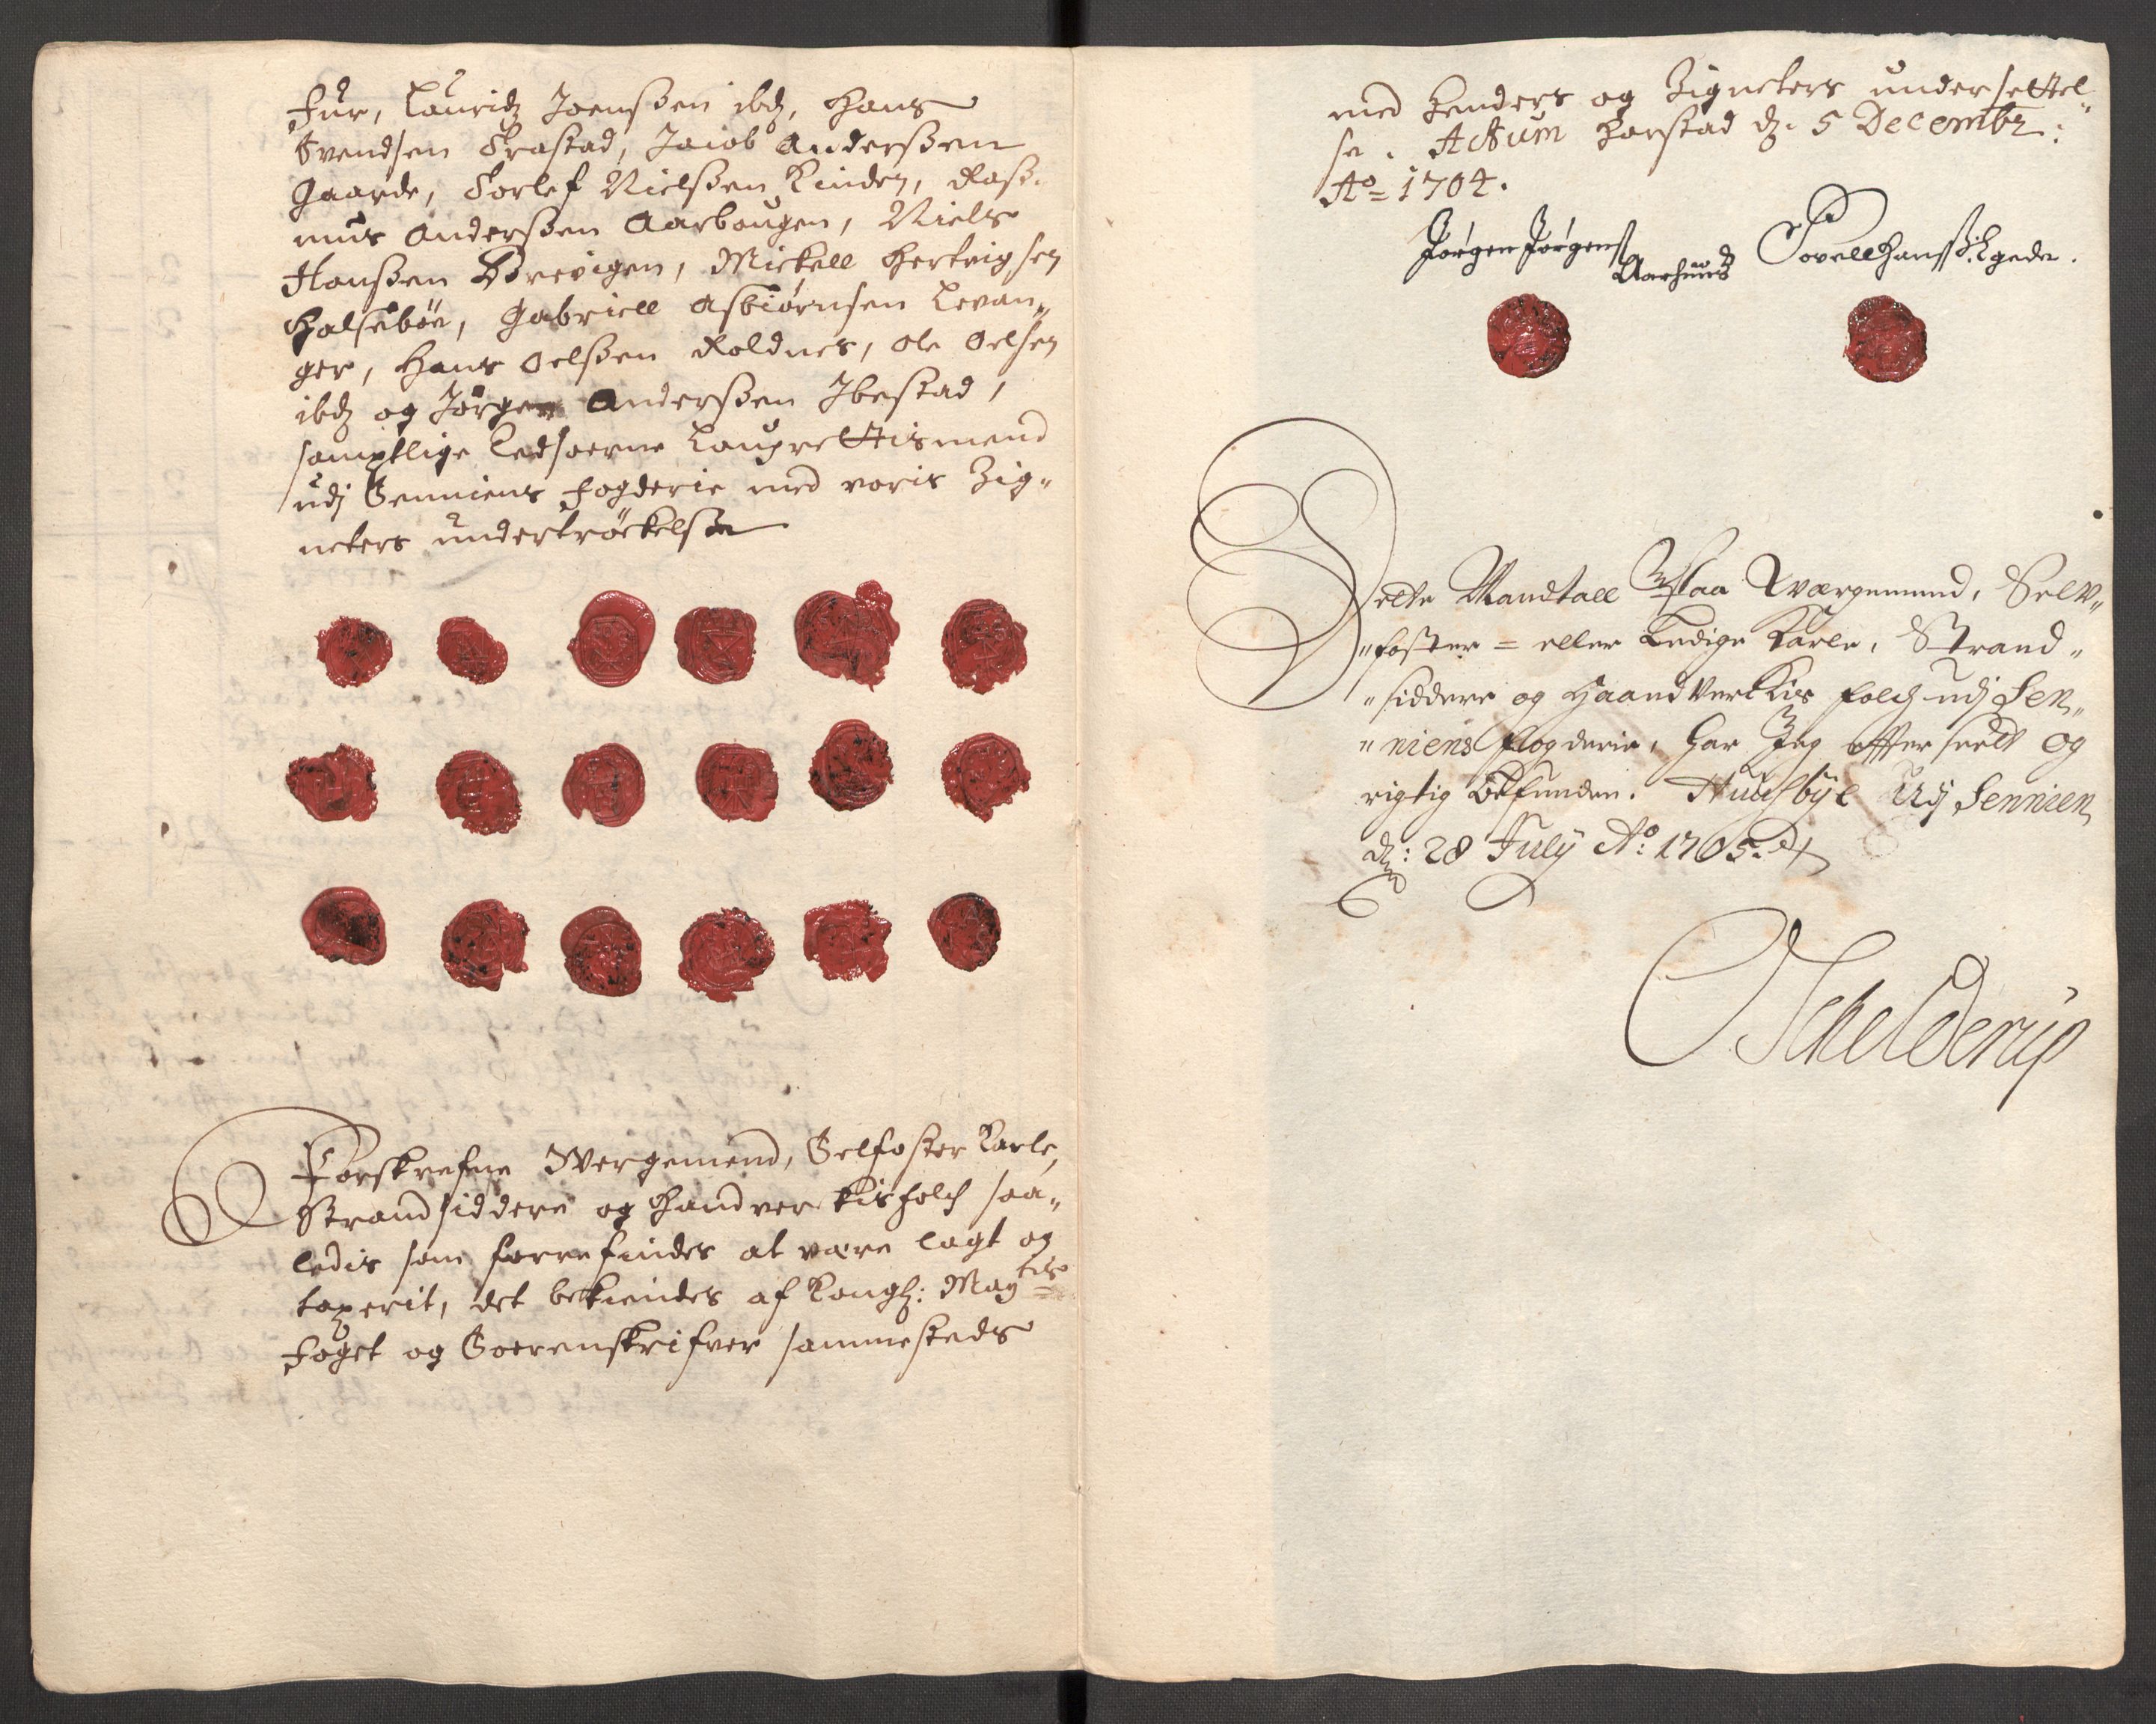 Fur, Lauridz Joenßen ibd, Hans
Svendsen Trastad, Jacob Anderßen
Gaarde, Torlef Nielßen Kinden, Raß-
mus Anderßen Aarbougen, Niels
Hanßen Brevigen, Mickell Hertvigsen
Halsebøe, Gabriell Asbiørnsen Levan„
ger, Hans Oelßen Roldnes, Ole Oelsen
ibd og Jørgen Anderßen Ibestad,
samptlige Edsorne Laugrettismend
udj Senniens Fogderie med voris Zig„
neters undertrøckelße
Forskrefne Wergemend, Selfoster Karle,
Strandsiddere og Handverkisfolch saa„
ledis som forrefindes at være lagt og
taxerit, det bekiendes af Kongl: May=tts
Foget og Sorenskrifver sammesteds
med Henders og Zigneters undersettel„
se. Actum Harstad d. 5 Decembr:
Ao= 1704.
Jørgen Jørgenß
Aarhuus
Povell Hanßøn Egede.
Dette Mandtall Paa Wærgemend, Selv„
„foster= eller Ledige Karle, Strand„
„siddere og Haandverkis folch udj Sen„
„niens Fogderie, har Jeg efterseedt og
rigtig befunden. Huusbÿe Udj Sennien
d: 28 Julÿ Ao: 1705.
O Schelderup